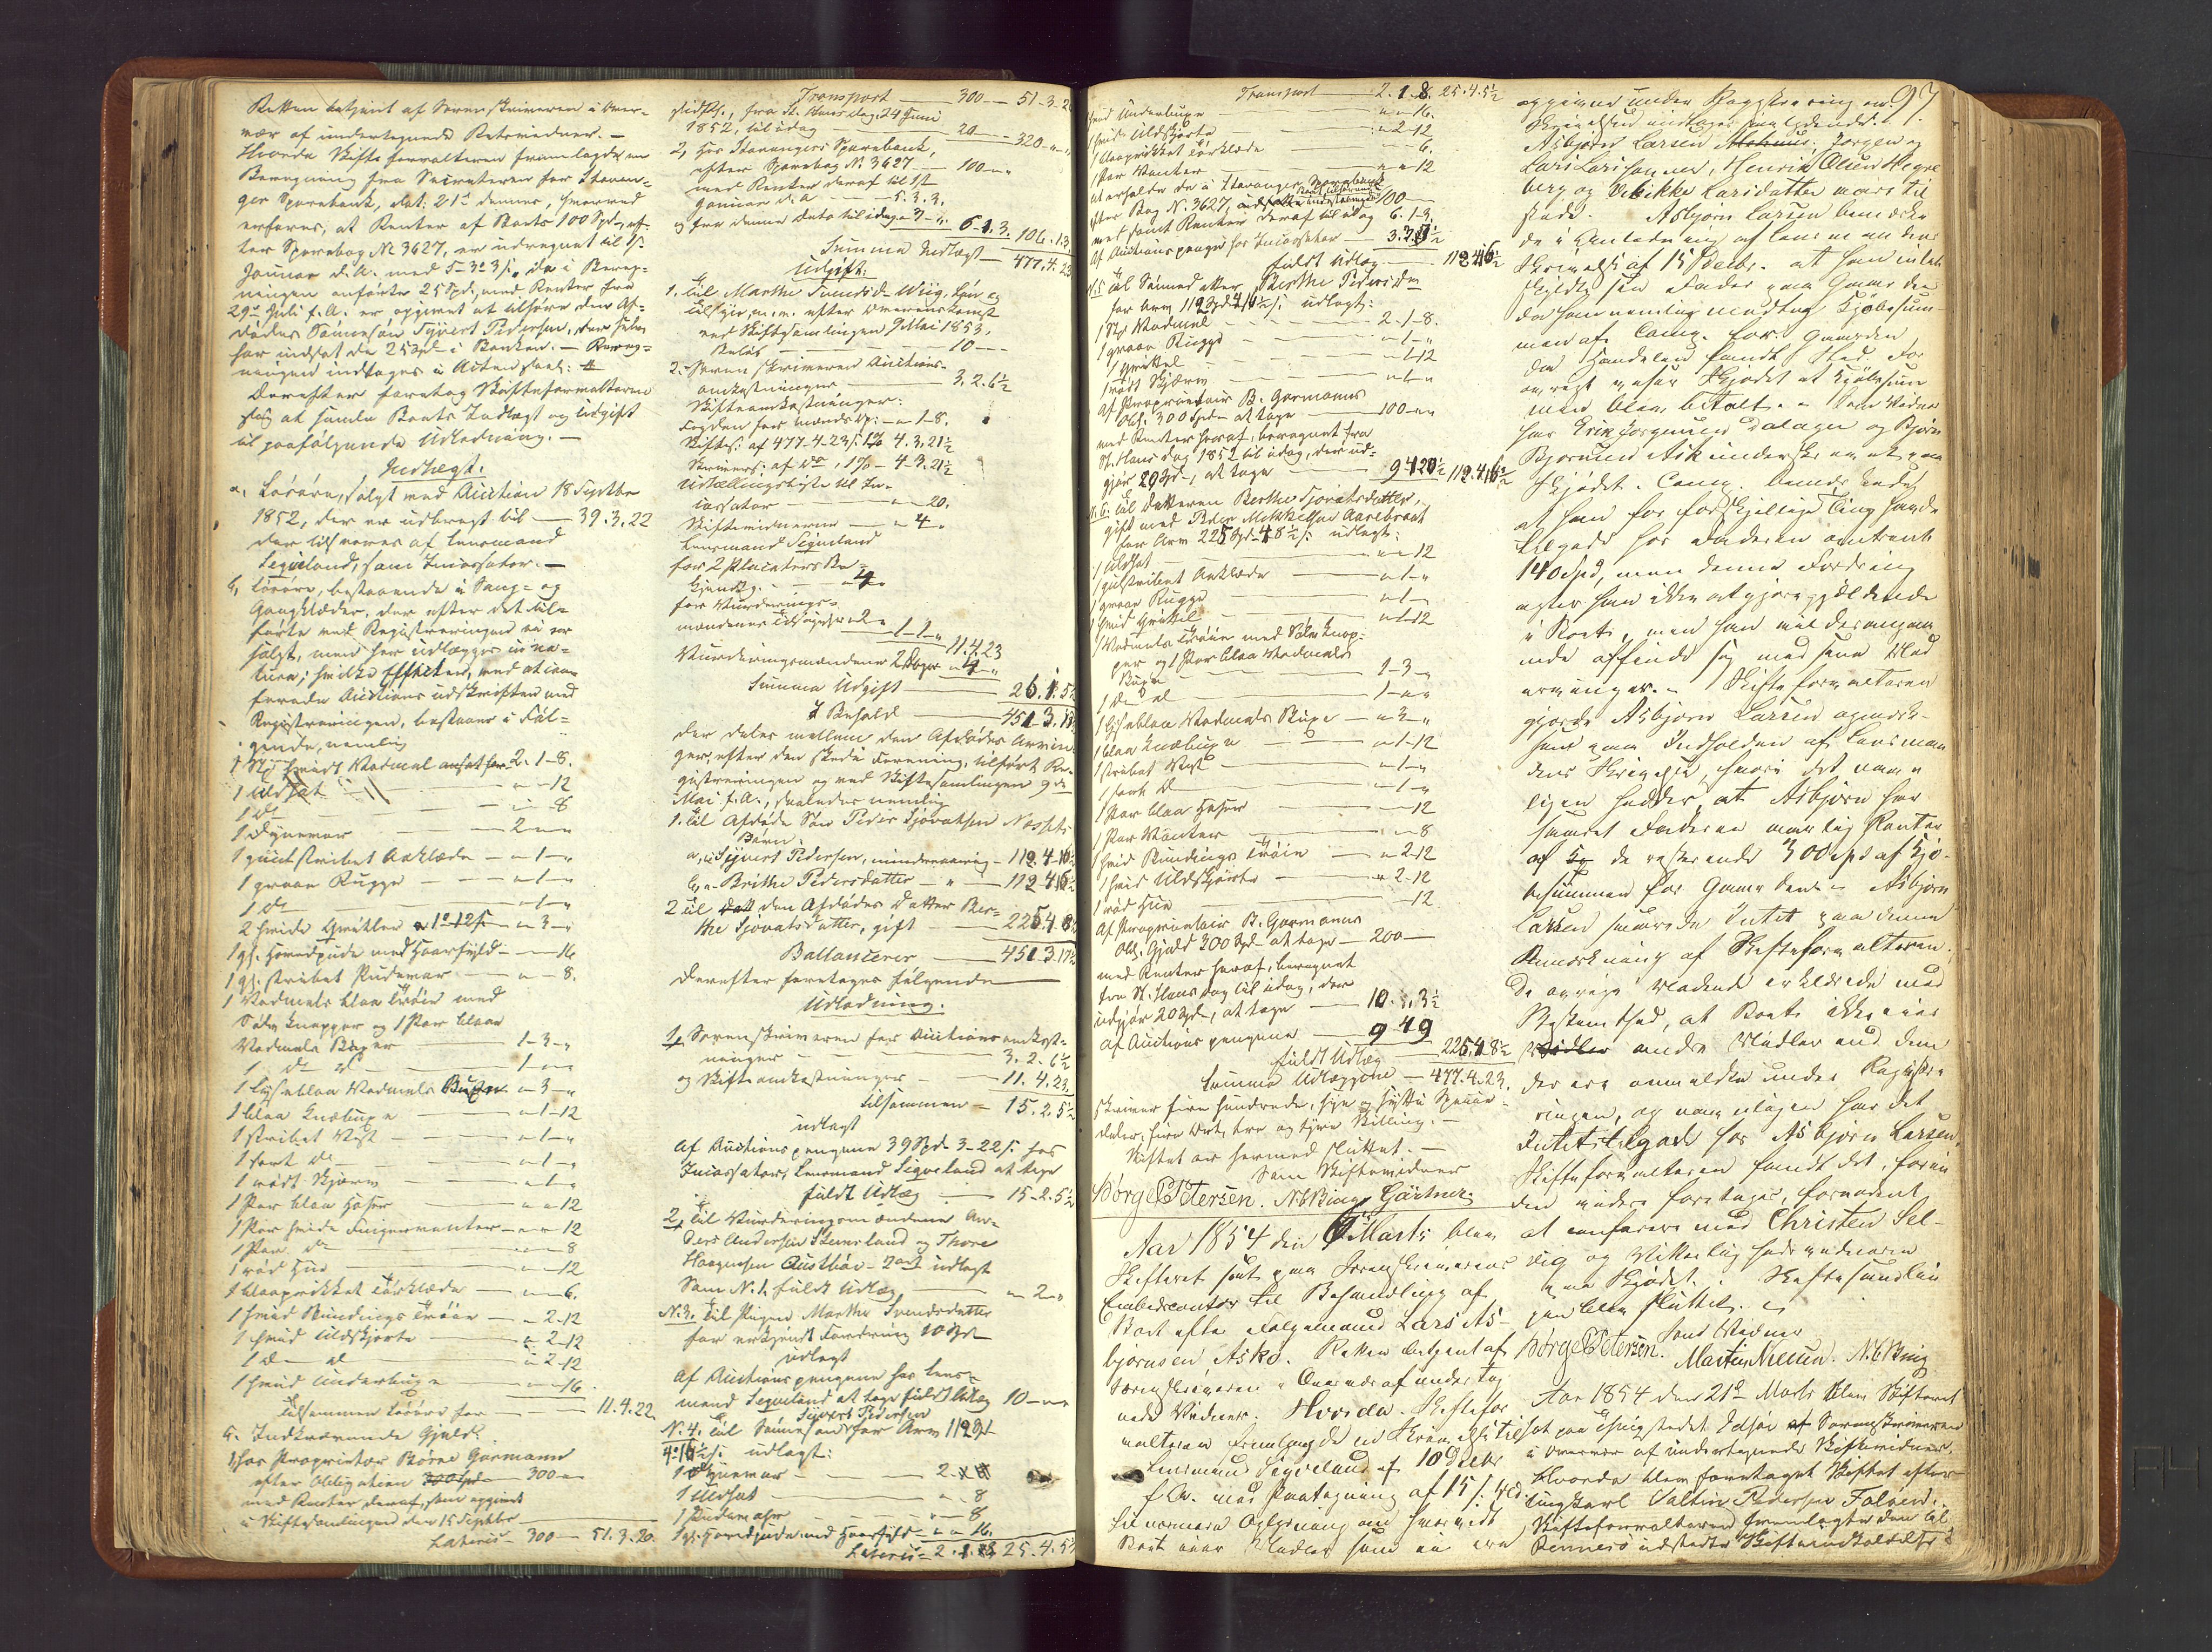 Retten betjent af Sorenskriveren i Over-
vær af undertegnede Retsvidner. —
Hvorda Skifteforvalteren fremlagde en
Beregning fra Secreteren for Stavan-
ger Sparebank, dat: 21de dennes, hvorved
erfares, at Renter af Boets 100 Spd, ef-
ter Sparebog No 3627, er udregnet til 1ste
Januar d.A. med 5-3-3 s., da i Bereg-
ningen anførte 25 Spd., med Renter fra
29de Juli f.A. er opgivet at tilhøre den Af-
dødes Sønnesøn Syvert Pedersen, der selv
har indsat de 25 Spd i Banken. — Bereg-
ningen indtages i Actensted: #
Derefter foretog Skifteforvalteren
sig at samle Boets Indtægt og Udgift
til paafølgende Udlodning. —
Indtægt:
a, Løsøre, solgt ved Auction 18 Septbr
1852, der er udbragt til — 39.3.22
der tilsvares af Lensmand
Sigveland, som Incassator. —
b, Løsøre, bestaaende i Seng- og
Gangklæder, der efter det til-
førte ved Registreringen ei er
solgt, men her udlægges in na-
tura; hvilke Effekter, ved at con-
ferere Auctionsudskriften med
Registreringen, bestaaer i Føl-
gende, nemlig
1 Stk hvidt Vadmel ansat for 2-1-8.
1 Uldsat — " - " - 12
1 do — " - " - 8
1 Dynevar — 2 - " - "
1 guulstribet Aaklæde — " - 1 - "
1 graae Rugge — " - 1 - "
1 do — " - 1 - "
2 hvide Grytler a 1 - 12 s. — " - 3 - "
1 gl. Hovedpude med Haarfyld — " - " - 16
1 gl. stribet Pudevar — " - " - 8.
1 Vadmels blaa Trøie med
Sølvknapper og 1 Par blaae
Vadmels Buxer — 1-3-"
1 do do — 1 - " - "
1 lyseblaa Vadmels Buxe — " - 3 - "
1 blaa Knæbuxe — " - 1 - 12
1 stribet Vest — " - 1 - "
1 sort do — " - 1 - "
1 rødt Skjærv — " - 1 - "
1 Par blaa Hoser — " - " - 12
1 Par hvide Fingervanter — " - " - 12
1 Par do — " - " - 8
1 rød Hue — " - " - 12
1 blaaprikket Tørklæde — " - " - 6.
1 hvid Bundings Trøie — " - 2 - 12
1 hvid Uldskjorte — " - 2 - 12
1 do do — " - 2 - 12
1 hvid Underbuxe — " - " - 16
Tilsammen Løsøre for — 11.4.22
c. Indkrævende Gjæld:
1, hos Proprietær Børre Garmann
efter Obligation 300 Spd — 300 - " - "
med Renter deraf, som opgivet
i Skiftesamlingen den 15 Septbr
Lateris — 300 — 51.3.20.
Transport — 300 — 51-3-20
sidstl., fra St. Hansdag, 24 Juni
1852, til idag — 20 — 320 - " - "
2, hos Stavangers Sparebank,
efter Sparebog No 3627 — 100 - " - "
med Renter deraf til 1st
Januar d.A — 5.3.3.
og fra denne Dato til idag " 3 - " 6-1.3. 106.1.3
Summa Indtægt — 477.4.23
Udgift:
1. til Marthe Svendsd. Wiig, Løn og
Tilsyn, m.m. efter Overenskomst
ved Skiftesamlingen 9 Mai 1853,
Beløb — 10 - - -
2. Sorenskriveren Auctions-
omkostninger — 3.2.6½
Skifteomkostninger:
Fogden for Mandsløn: — " 1-8.
Skifts: af 477-4-23 s. 1% 4.3.21½
Skrivers: af do, 1% — 4-3.21½
Udtællingsliste til In-
cassator — " - " 20.
Skiftevidnerne — " - 4 - "
Lensmand Sigveland
for 2 Placaters Be-
kjendtg. — " - 4 - "
for Vurderings-
mændenes Tilsigelse " - 2 - "
1-1-" 11.4.23
Vurderingsmændene 2 Dage " - 4 - "
Summa Udgift — 26.1.5½
I Behold — 451.3.17½
der deles mellem den Afdødes Arvin-
ger, efter den skede Forening, tilført Re-
gistreringen og ved Skiftesamlingen 9de
Mai f.A., saaledes nemlig
1. Til Afdøde Søn Peder Sjovatsen Nessets
Børn:
a, til Syvert Pedersen, mindreaarig — 112.4-16½
b, " Brithe Pedersdatter — " — 112-4.16½
2 til den Afdødes Datter Ber-
the Sjovatsdatter, gift — 225.4.8½
Ballancerer — 451.3.17½
Derefter foretages følgende
Udlodning.
1, Sorenskriveren for Auctionsomkost-
ninger — 3.2.6½
og Skifteomkostninger — 11.4.23.
tilsammen — 15.2.5½
udlagt
Af Auctionspengene 39 Spd. 3-22 s. hos
Incassator, Lensmand Sigveland at tage
fuldt Udlæg — 15-2.5½
2, til Vurderingsmændene An-
ders Andersen Stensland og Thore
Haagensen Austbøe — 2 Ort udlagt
Som N. 1. fuldt Udlæg — " 2 - "
N. 3. til Pigen Marthe Svendsdatter
for erkjendt Fordring 10 Spd —
udlagt
Af Auctionspengene hos Lens-
mand Sigveland at tage fuldt Udlæg 10 - " - "
Syvert Pedersen
N. 4. til Sønnesøn for Arv 112 Spd
4-16½ s. udlagt:
1 Dynevar — 2.
1 Uldsat — " - " 8
1 Pudevahr — " - " - 8
1 gl. Hovedpude med Haarfyld — " - " 16.
Lateris — 2.1.8 25.4.5½
Transport — 2.1.8. 25.4.5½
hvid Underbuxe — " - " - 16.
1 hvid Uldskjorte — " - 2 - 12
1 blaaprikket Tørklæde — " - " - 6.
1 Par Vanter — " - " 12
at erholde de i Stavanger Sparebank
efter Bog N. 3627, indestaaende 100
med samt Renter deraf til idag 6.1-3.
Af Auctionspenge hos Incassator — 3.3.
fuldt Udlæg — 112 4 16½
N. 5 til Sønnedatter Berthe Pedersdtr
for Arv 112 Spd 4.16½ s. udlagt:
1 Stk Vadmel — 2-1-8.
1 graae Rugge — " - 1 - "
1 Grytel — " - 1 - 12
1 rødt Skjærv — " - 1 - "
Af Proprietair B. Garmanns
Obl. 300 Spd at tage — 100 - " - "
med Renter heraf, beregnet fra
St. Hansdag 1852 til idag, der ud-
gjør 20 Spd —, at tage — 9 4 20½ 112.4.16½
N. 6. til Datteren Berthe Sjovatsdatter,
gift med Peder Mikkelsen Aarebrot
for Arv 225 Spd — 4 8½ s. udlagt:
1 Uldsat — " - " - 12
1 guulstribet Aaklæde — " - 1 - "
1 graae Rugge — " - 1 - "
1 hvid Grytel — " - 1 - 12
1 Vadmels Trøie med Sølvknap-
per og 1 Par blaa Vadmels
Buxe — 1-3-"
1 do do — 1 - " - "
1 lyseblaa Vadmels Buxe — " 3 - "
1 blaa Knæbuxe — " - 1 - 12
1 stribet Vest — " - 1 - "
1 sort do — " - 1 - "
1 Par blaa Hoser — " - " - 12
1 Par Vanter — " - " - 8
1 hvid Bundings Trøie — " - 2-12
1 hvid Uldskjorte — " 2-12
1 rød Hue — 12
Af Proprietair B. Garmanns
Obl. Gjæld 300 Spd at tage — 200 —
med Renter heraf, beregnet
fra St. Hansdag til idag, der
udgjør 20 Spd, at tage — 10. . 3½
af Auctionspengene — 9 4 9
fuldt Udlæg — 225.4 8½
Summa Udlæggene — 477.4.23.
skriver fire hundrede, syv og sytti Specie-
daler, fire Ort, tre og tyve Skilling. —
Skiftet er hermed sluttet. —
Som Skiftevidner
Børge Petersen. N B Bing Gärtner
Aar 1854 den Marts blev
Skifteret sat paa Sorenskriverens
Embedscontor til Behandling af
Boet efter Folgemand Lars As-
bjørnsen Askø. Retten betjent af
Sorenskriveren i Overvær af underteg-
nede Vidner. Hvorda Skiftefor-
valteren fremlagde en Skrivelse til
Lensmand Sigveland af 10 Decbr
f.A. med Paategning af 15 s. Md.
til nærmere Oplysning om hvorvidt
Boet eier Midler som ei ere
97
opgivne under Registrering
Skrivelsen indtages saalydende
Asbjørn Larsen Jørgen og
Lars Larssønner, Henrik Olsen Hegre-
berg og Vibikke Larsdatter vare til-
stede. Asbjørn Larsen bemærke-
de i Anledning af Lensmandens
Skrivelse af 15 Decbr. at han intet
skyldte sin Fader paa Gaarden
da han nemlig modtog Kjøbesum-
men af Comp. for Gaarden
da Handelen fandt Sted. For
øvrigt viser Skjødet at Kjøbesum-
men blev betalt. — Som Vidner
har Erik Jørgensen Dalager og Bjørn
Bjørnsen Ask underskrevet paa
Skjødet. Comp. bemærkede
at han for forskjellige Ting havde
tilgode hos Faderen omtrent
140 Spd, men denne Fordring
agter han ikke at gjøre gjældende
i Boet, men han vil derangaa-
ende affinde sig med sine Med-
arvinger. — Skifteforvalteren
gjorde Asbjørn Larsen opmærk-
som paa Indholden af Lensman-
dens Skrivelse, hvori det navn-
ligen hedder, at Asbjørn har
svaret Faderen aarlig Renter
af de resterende 300 Spd af Kjø-
besummen for Gaarden. — Asbjørn
Larsen svarede Intet paa denne
Bemærkning af Skifteforvalteren.
De øvrige Mødende erklærede med
Bestemthed, at Boet ikke eier
andre Midler end dem
der ere anmeldte under Registre-
ringen, og navnligen har det
Intet tilgode hos Asbjørn Larsen.
Skifteforvalteren fandt det, forin-
den videre foretages, fornødent
at conferere med Christen Sel-
vig og Vitterlighedsvidnerne
paa Skjødet. Skiftesamlin-
gen blev sluttet.
Som Vidner
Børge Petersen. Martin Nielsen. N.B Bing
Aar 1854 den 21de Marts blev Skifteret
sat paa Thingstedet Idsøe af Sorenskriveren
i Overvær af undertegnede Skiftevidner.
Hvorda blev foretaget Skiftet efter
Ungkarl Valtin Pedersen Falnes.
Skifteforvalteren fremlagde den til
Rennesø udstedte Skifteindkaldelse